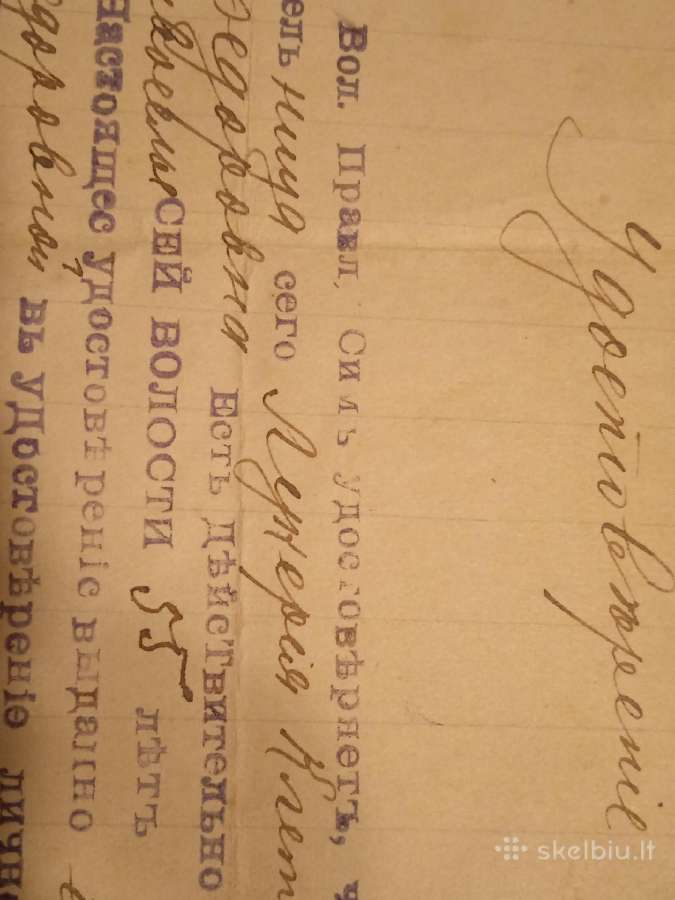 Удостовѣреніе
Вол. Правл. Симъ удостовѣряетъ, ч
ельница сего Лукерія
едоровна Есть Дѣйствительно
СЕЙ ВОЛОСТИ 55 лѣтъ
Настоящее удостовѣреніе выдано
доровной въ удостовѣреніе личн
skelbiu.lt